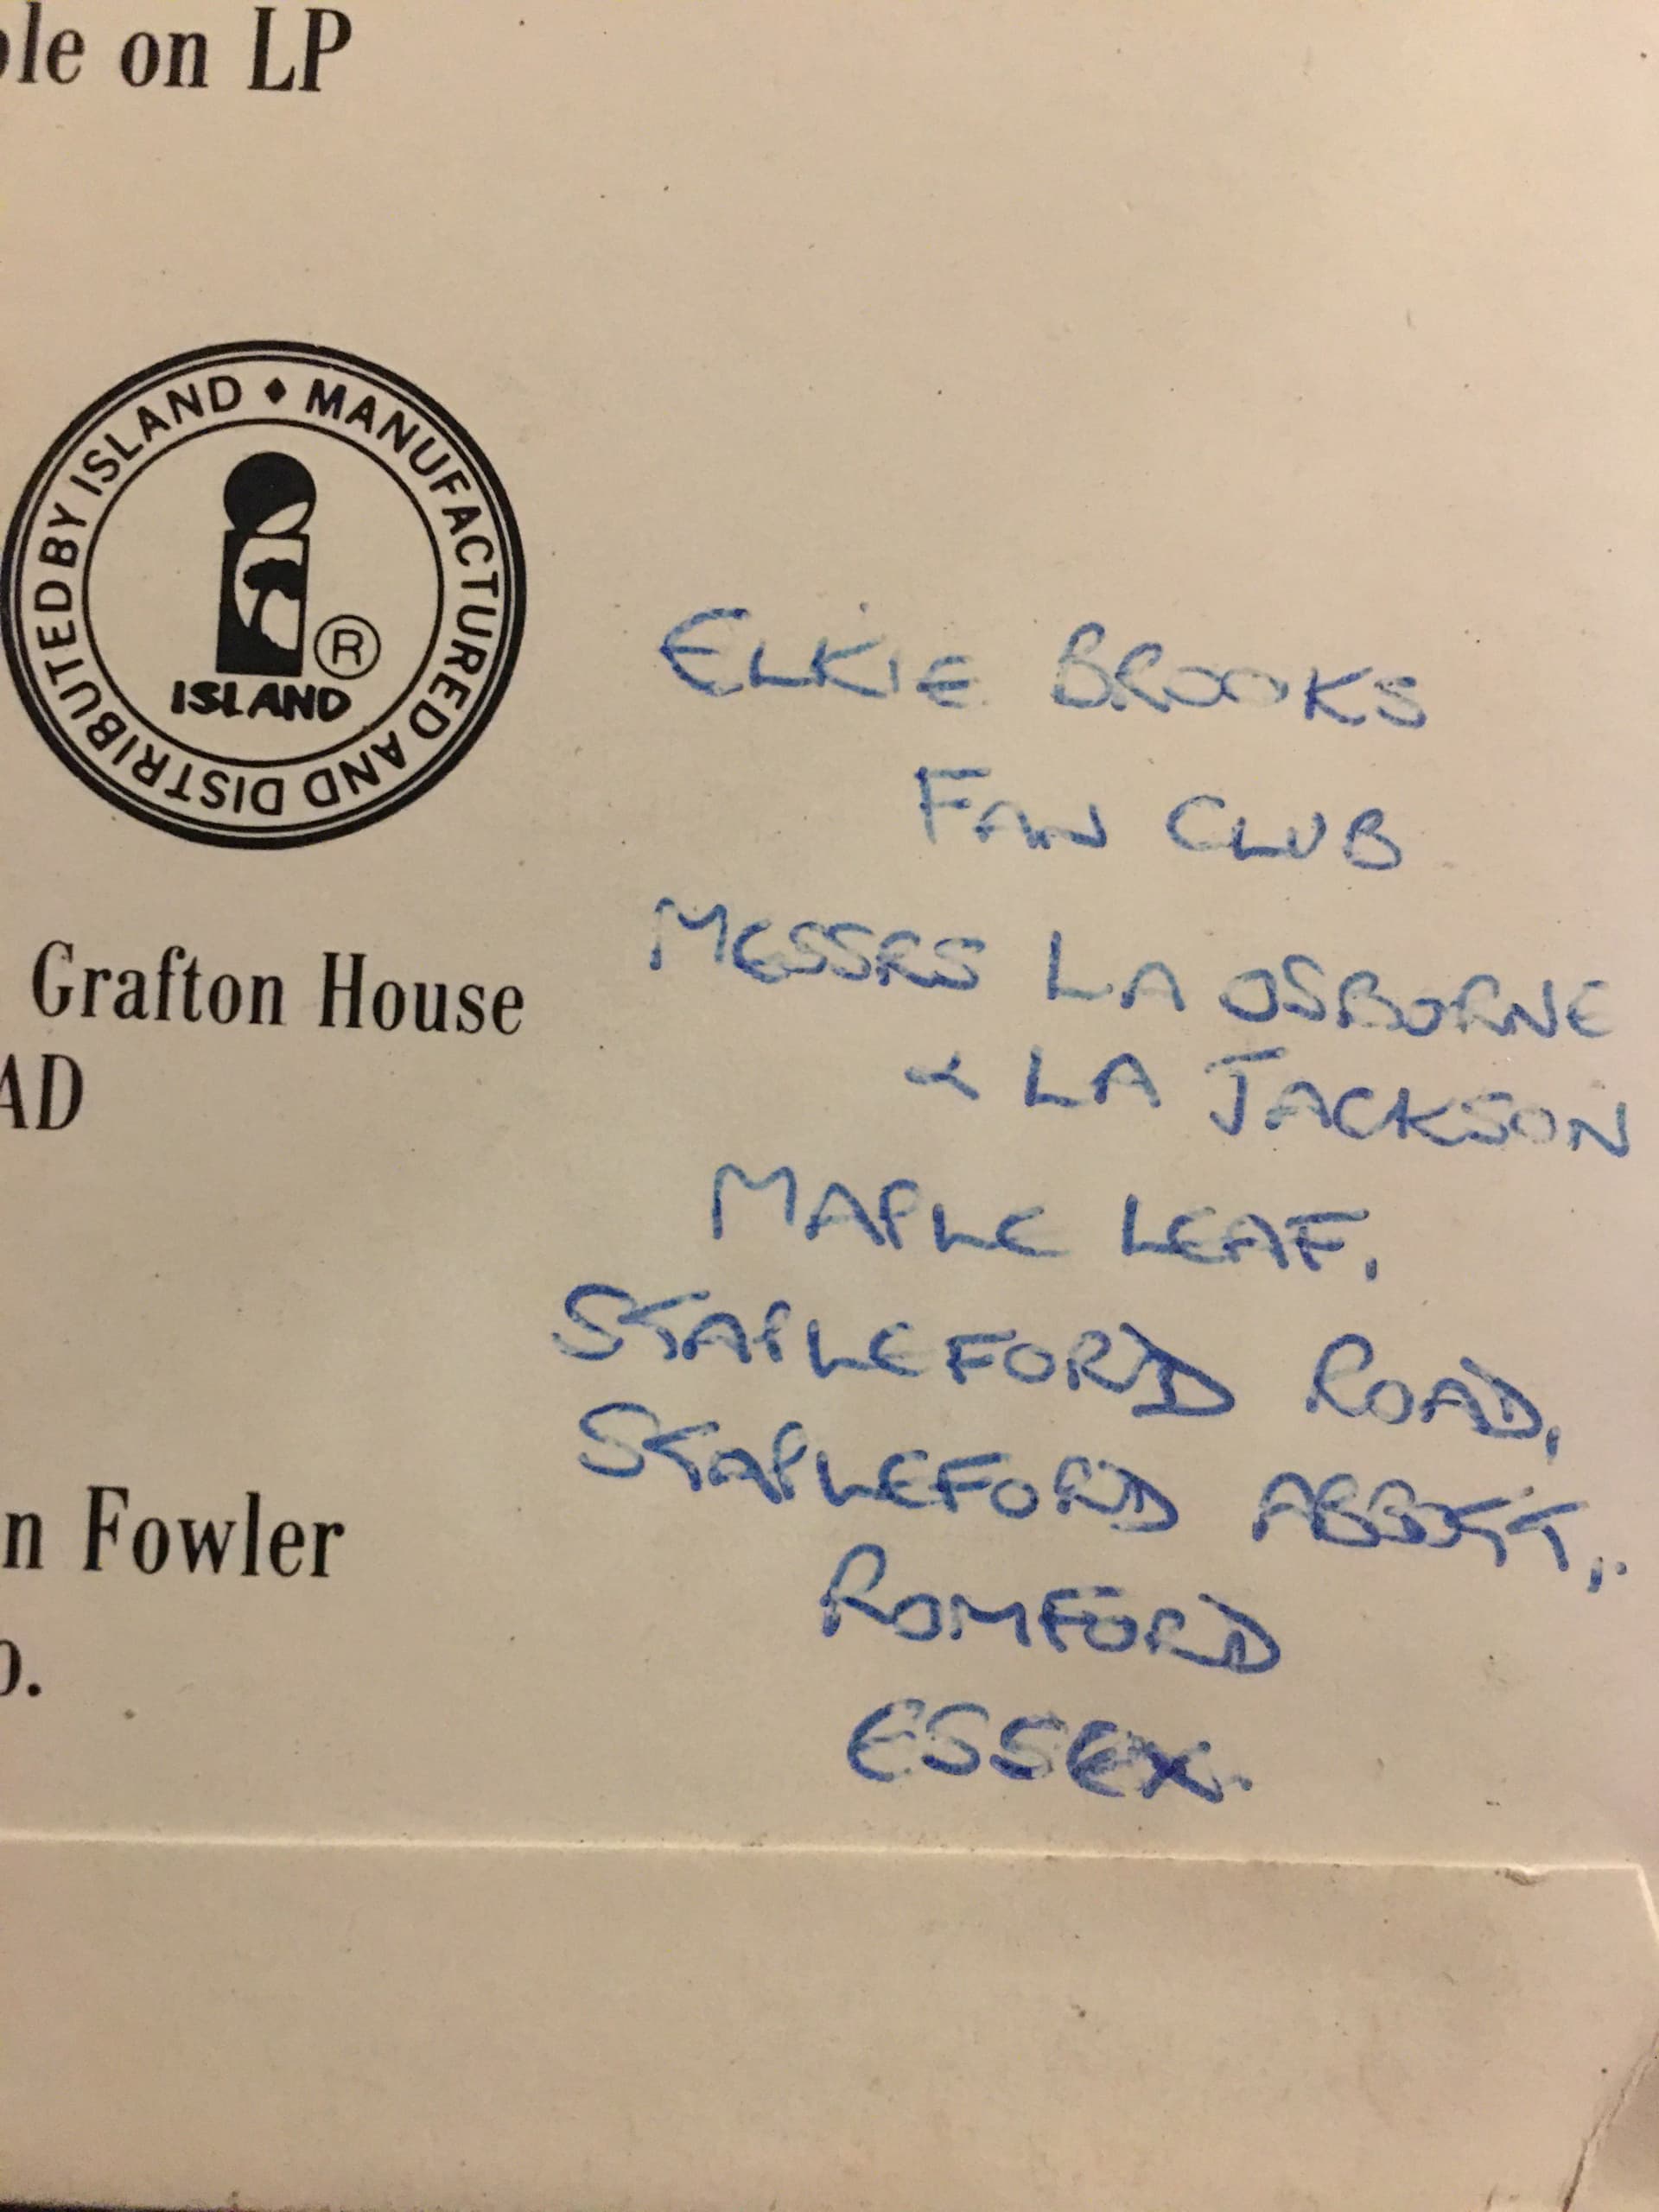 ole on LP
MANUFACTURED AND DISTRIBUTED BY ISLAND
®
ISLAND
ELKIE BROOKS
FAN CLUB
MESSRS LA OSBORNE
& LA JACKSON
Grafton House
AD
MAPLE LEAF,
STAPLEFORD ROAD,
STAPLEFORD ABBOTT,.
n Fowler
ROMFORD
o.
ESSEX.